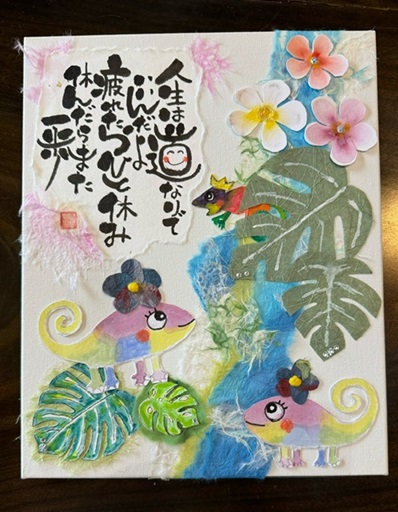 人生は道なりで
いいんだよ
疲れたらひと休み
休んだらまた
一歩